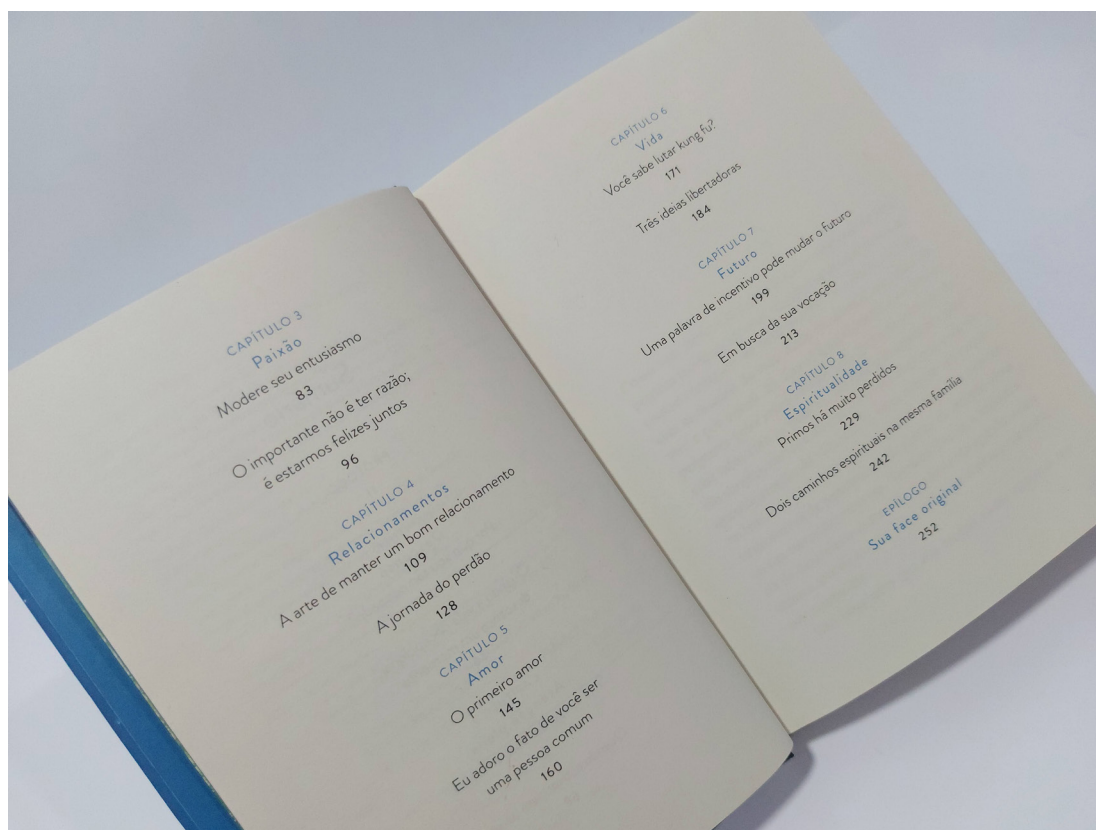 CAPÍTULO 3
Paixão
Modere seu entusiasmo
83
O importante não é ter razão;
é estarmos felizes juntos
96
CAPÍTULO 4
Relacionamentos
A arte de manter um bom relacionamento
109
A jornada do perdão
128
CAPÍTULO 5
Amor
O primeiro amor
145
Eu adoro o fato de você ser
uma pessoa comum
160
CAPÍTULO 6
Vida
Você sabe lutar kung fu?
171
Três ideias libertadoras
184
CAPÍTULO 7
Futuro
Uma palavra de incentivo pode mudar o futuro
199
Em busca da sua vocação
213
CAPÍTULO 8
Espiritualidade
Primos há muito perdidos
229
Dois caminhos espirituais na mesma família
242
EPÍLOGO
Sua face original
252